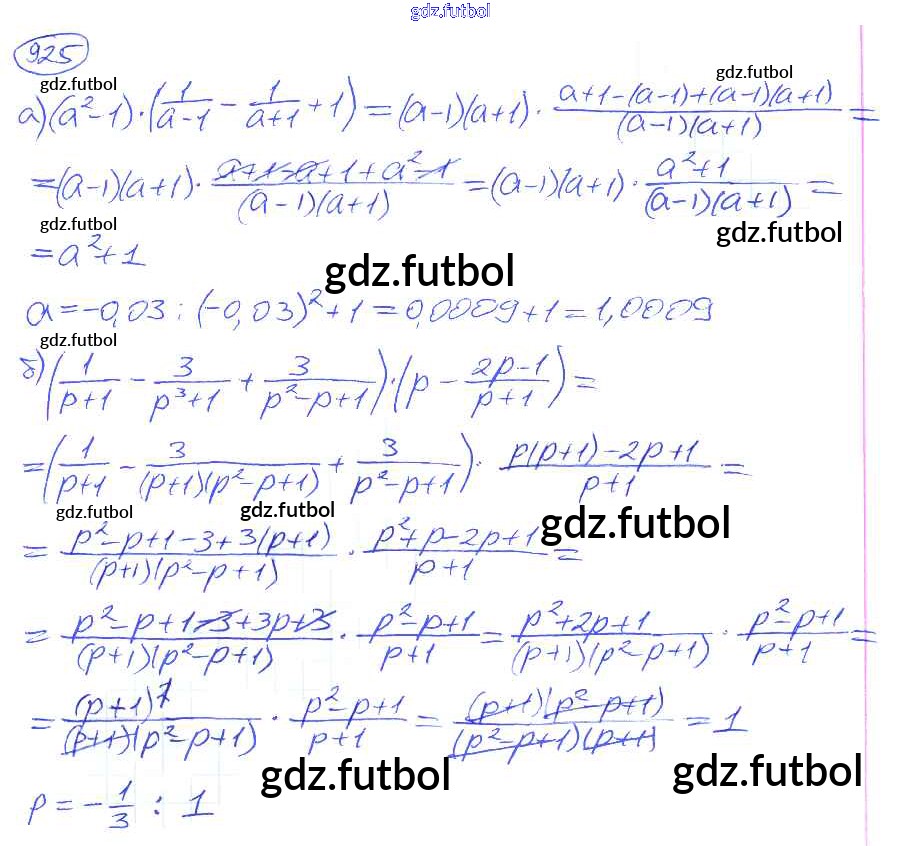 gdz.futbol
925
gdz.futbol gdz.futbol
а) (a²-1)·(1/(a-1) - 1/(a+1) + 1) = (a-1)(a+1) · (a+1-(a-1)+(a-1)(a+1))/((a-1)(a+1)) =
= (a-1)(a+1) · (a+1-a+1+a²-1)/((a-1)(a+1)) = (a-1)(a+1) · (a²+1)/((a-1)(a+1)) =
gdz.futbol gdz.futbol
= a²+1
gdz.futbol
a = -0,03 : (-0,03)²+1 = 0,0009+1 = 1,0009
gdz.futbol
б) (1/(p+1) - 3/(p³+1) + 3/(p²-p+1)) · (p - (2p-1)/(p+1)) =
= (1/(p+1) - 3/((p+1)(p²-p+1)) + 3/(p²-p+1)) · (p(p+1)-2p+1)/(p+1) =
gdz.futbol gdz.futbol gdz.futbol
= (p²-p+1-3+3(p+1))/((p+1)(p²-p+1)) · (p²+p-2p+1)/(p+1) =
= (p²-p+1-3+3p+3)/((p+1)(p²-p+1)) · (p²-p+1)/(p+1) = (p²+2p+1)/((p+1)(p²-p+1)) · (p²-p+1)/(p+1) =
= (p+1)²/((p+1)(p²-p+1)) · (p²-p+1)/(p+1) = ((p+1)(p²-p+1))/((p²-p+1)(p+1)) = 1
gdz.futbol gdz.futbol
p = -1/3 : 1